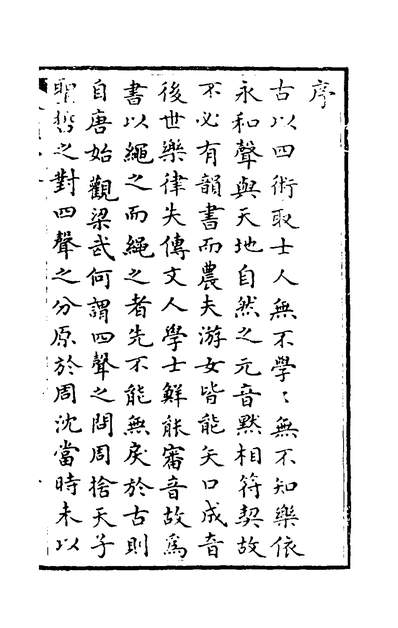 序
古以四術取士人無不學〻無不知樂依
永和聲與天地自然之元音黙相符契故
不必有韻書而農夫游女皆能矢口成音
後世樂律失傳文人學士鮮能審音故爲
書以繩之而繩之者先不能無戾於古則
自唐始觀梁武何謂四聲之問周捨天子
聖哲之對四聲之分原於周沈當時未以